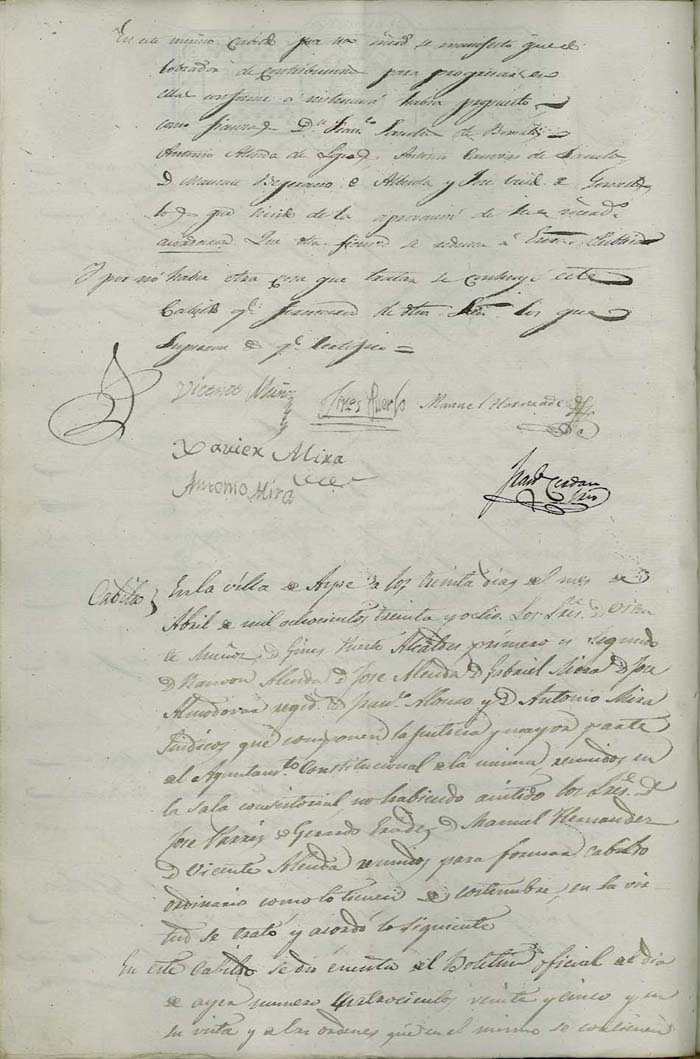 En este mismo Cabildo por sus mrds se manifesto que el
Cobrador de Contribucion para progresar en
ella conforme a instruccion habia propuesto
como fianzas D.n Fran.co de
Antonio Alenda de Lopez, Antonio de
D Manuel de Alenda y Jose de
lo que visto de la aprovacion de sus mrds
acordaron Que dha fianza se reduzca a Publica
Y por no haber otra cosa que tratar se concluyó este
Cabildo q.e firmaron de dhos Sres los que
supieron de q.e Certifico =
Vicente Muñoz Gines Puerto Manuel Hernandez
Xavier Mira
Antonio Mira
Cerdan
Srio
Cabildo En la villa de Aspe a los treinta dias del mes de
Abril de mil ochocientos treinta y ocho. Los Sres. D Vicen
te Muñoz, D Gines Puerto Alcaldes primero y segundo
D Ramon Alenda D Jose Alenda D Gabriel Mira D Jose
Almodovar regid.s D Fran.co Alonso y D Antonio Mira
Sindicos que componen la justicia y mayor parte
del Ayuntam.to Constitucional de la misma, reunidos en
la Sala consistorial, no habiendo asistido los Sres. D
Jose D Gerardo D Manuel Hernandez
D Vicente Alenda reunidos para formar cabildo
ordinario como lo tienen de costumbre, en la vir
tud se trató y acordó lo siguiente
En este Cabildo se dio cuenta del Boletin oficial del dia
de ayer numero quatrocientos veinte y cinco y en
su vista y de las ordenes que en el mismo se contienen